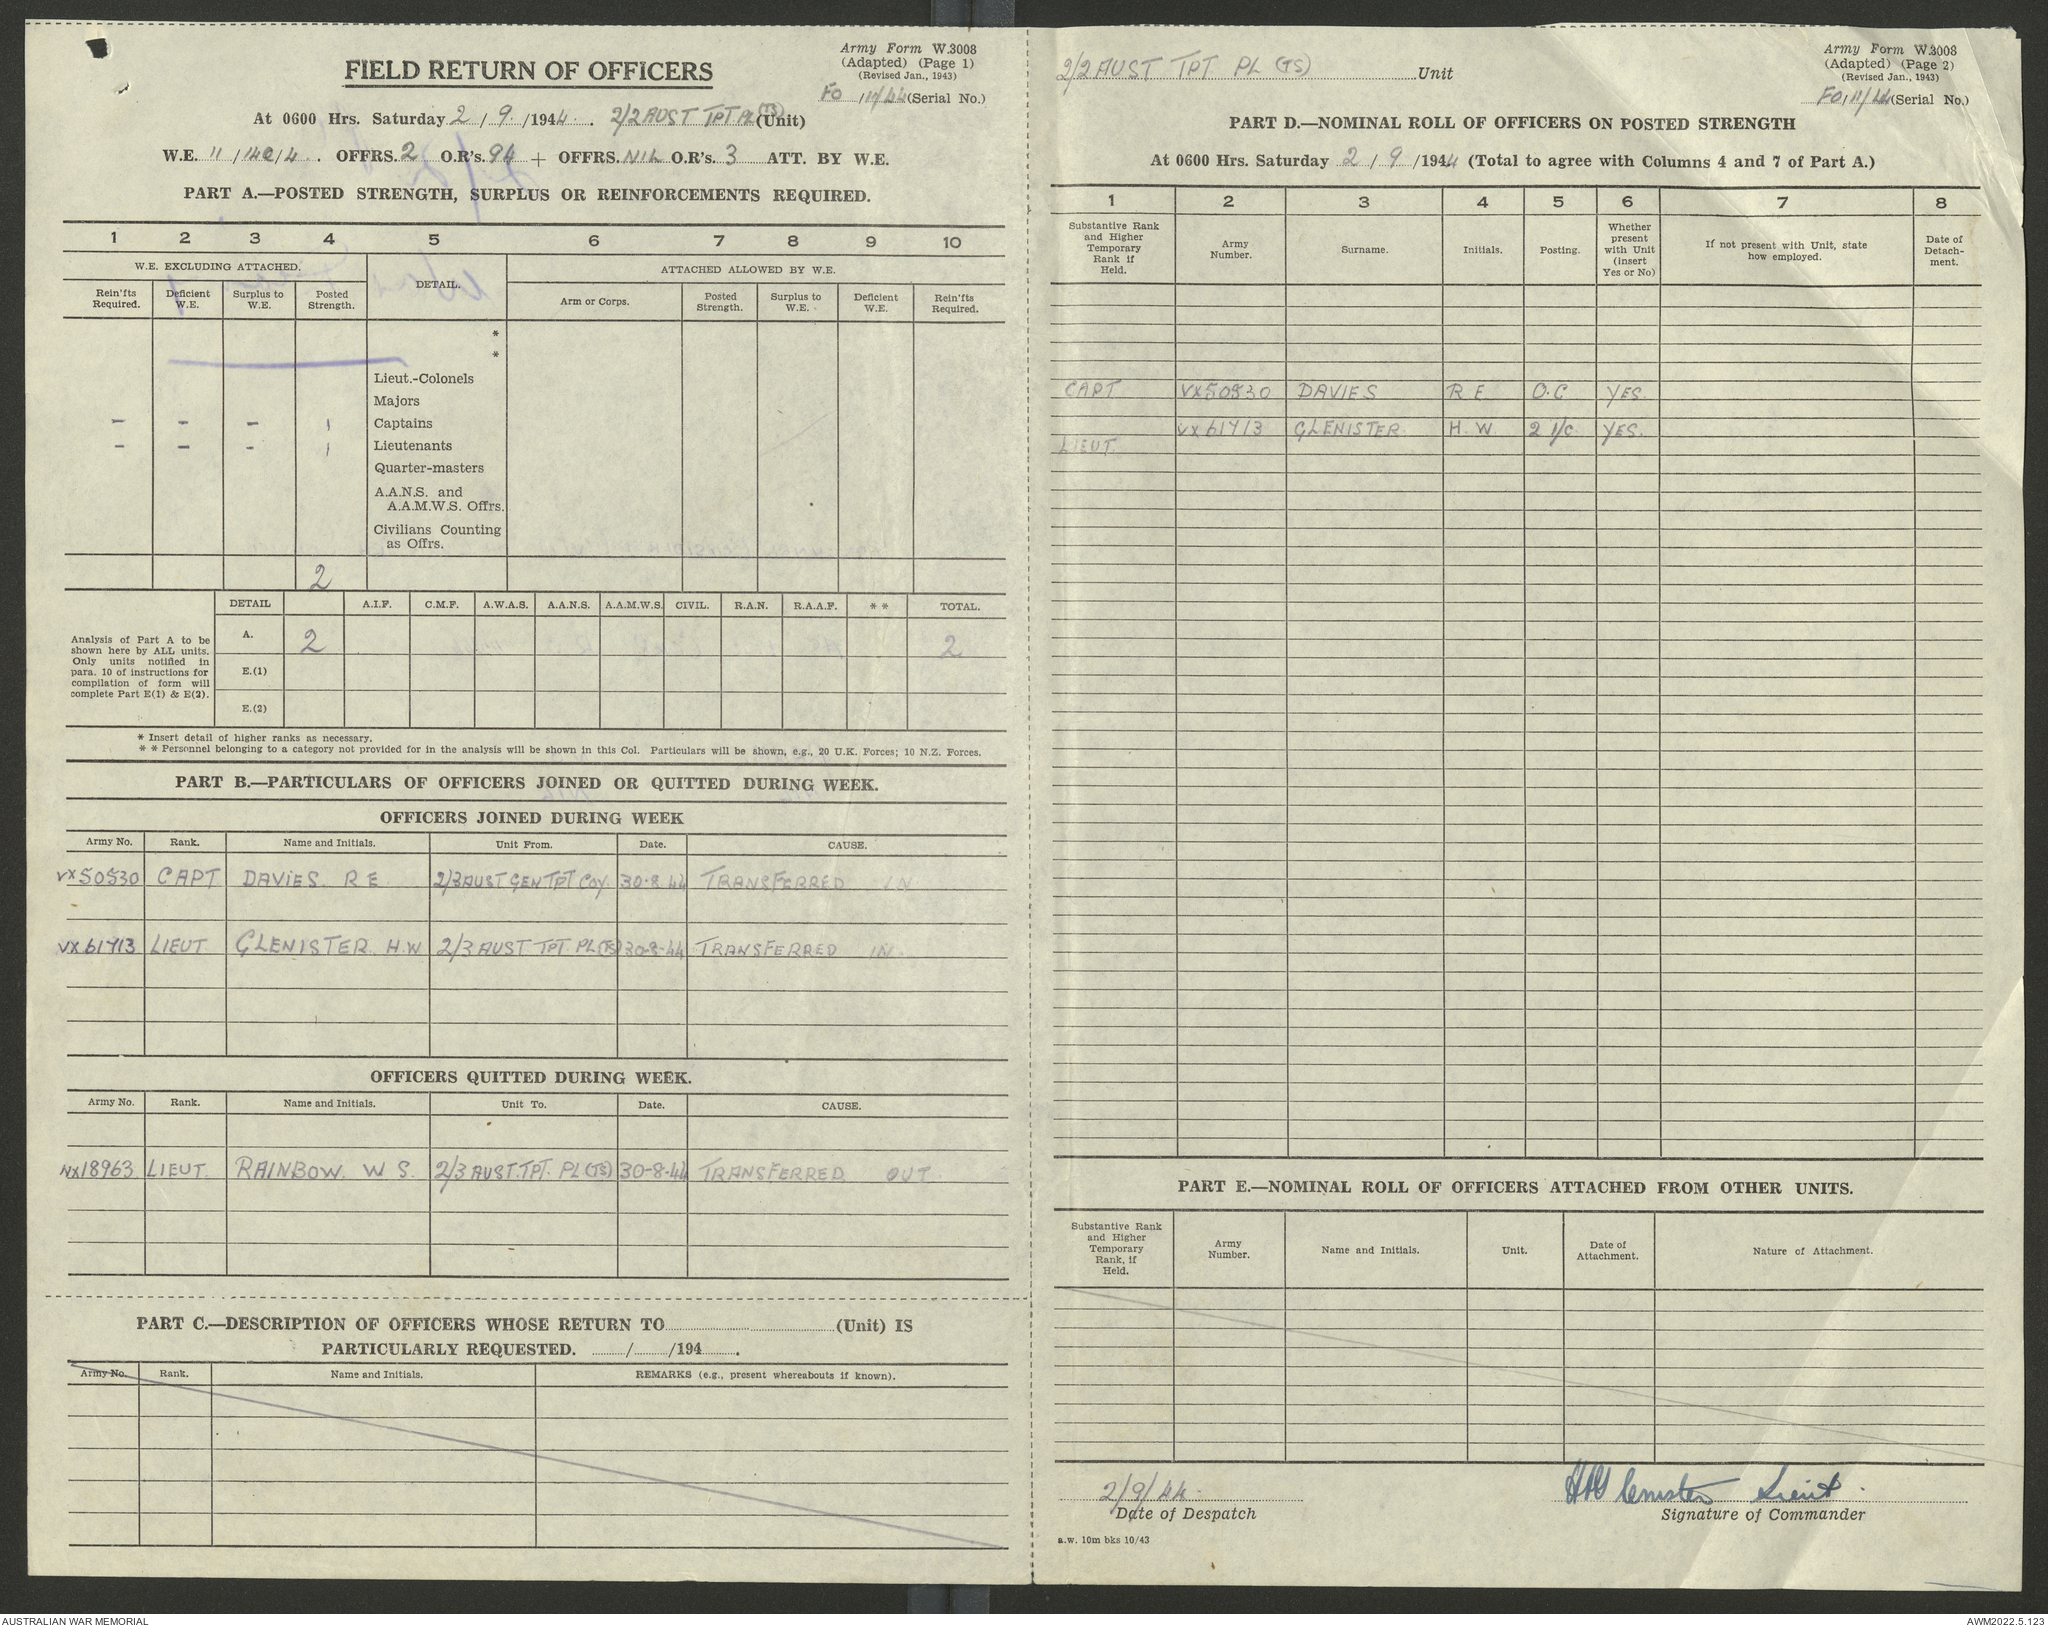 Army Form W.3008
(Adapted) (Page 1)
(Revised Jan., 1943)
FIELD RETURN OF OFFICERS
FO/11/44 (Serial No.)
At 0600 Hrs. Saturday 2/9/1944. 2/2 AUST TPT PL (TS) (Unit)
W.E. 11/140/4. OFFRS. 2 O.R's. 94 + OFFRS. NIL O.R's. 3 ATT. BY W.E.
PART A.—POSTED STRENGTH, SURPLUS OR REINFORCEMENTS REQUIRED.
1 2 3 4 5 6 7 8 9 10
W.E. EXCLUDING ATTACHED. DETAIL. ATTACHED ALLOWED BY W.E.
Rein'fts Required. Deficient W.E. Surplus to W.E. Posted Strength. Arm or Corps. Posted Strength. Surplus to W.E. Deficient W.E. Rein'fts Required.
*
*
Lieut.-Colonels
Majors
– – – 1 Captains
– – – 1 Lieutenants
Quarter-masters
A.A.N.S. and
A.A.M.W.S. Offrs.
Civilians Counting
as Offrs.
2
DETAIL A.I.F. C.M.F. A.W.A.S. A.A.N.S. A.A.M.W.S. CIVIL. R.A.N. R.A.A.F. * * TOTAL.
Analysis of Part A to be
shown here by ALL units.
Only units notified in
para. 10 of instructions for
compilation of form will
complete Part E(1) & E(2).
A. 2 2
E.(1)
E.(2)
* Insert detail of higher ranks as necessary.
* * Personnel belonging to a category not provided for in the analysis will be shown in this Col. Particulars will be shown, e.g., 20 U.K. Forces; 10 N.Z. Forces.
PART B.—PARTICULARS OF OFFICERS JOINED OR QUITTED DURING WEEK.
OFFICERS JOINED DURING WEEK
Army No. Rank. Name and Initials. Unit From. Date. CAUSE.
VX50530 CAPT DAVIES R E 2/3 AUST GEN TPT COY 30-8-44 TRANSFERRED IN
VX61713 LIEUT GLENISTER H.W 2/3 AUST TPT PL (TS) 30-8-44 TRANSFERRED IN
OFFICERS QUITTED DURING WEEK.
Army No. Rank. Name and Initials. Unit To. Date. CAUSE.
NX18963 LIEUT. RAINBOW W S. 2/3 AUST. TPT. PL (TS) 30-8-44 TRANSFERRED OUT
PART C.—DESCRIPTION OF OFFICERS WHOSE RETURN TO (Unit) IS
PARTICULARLY REQUESTED. / /194 .
Army No. Rank. Name and Initials. REMARKS (e.g., present whereabouts if known).
2/2 AUST TPT PL (TS) Unit
Army Form W.3008
(Adapted) (Page 2)
(Revised Jan., 1943)
FO/11/44 (Serial No.)
PART D.—NOMINAL ROLL OF OFFICERS ON POSTED STRENGTH
At 0600 Hrs. Saturday 2/9/1944 (Total to agree with Columns 4 and 7 of Part A.)
1 2 3 4 5 6 7 8
Substantive Rank and Higher Temporary Rank if Held. Army Number. Surname. Initials. Posting. Whether present with Unit (insert Yes or No) If not present with Unit, state how employed. Date of Detachment.
CAPT VX50530 DAVIES R E O.C YES.
LIEUT. VX61713 GLENISTER H. W 2 I/C YES.
PART E.—NOMINAL ROLL OF OFFICERS ATTACHED FROM OTHER UNITS.
Substantive Rank and Higher Temporary Rank, if Held. Army Number. Name and Initials. Unit. Date of Attachment. Nature of Attachment.
2/9/44 HW Glenister Lieut.
Date of Despatch Signature of Commander
a.w. 10m bks 10/43
AUSTRALIAN WAR MEMORIAL AWM2022.5.123